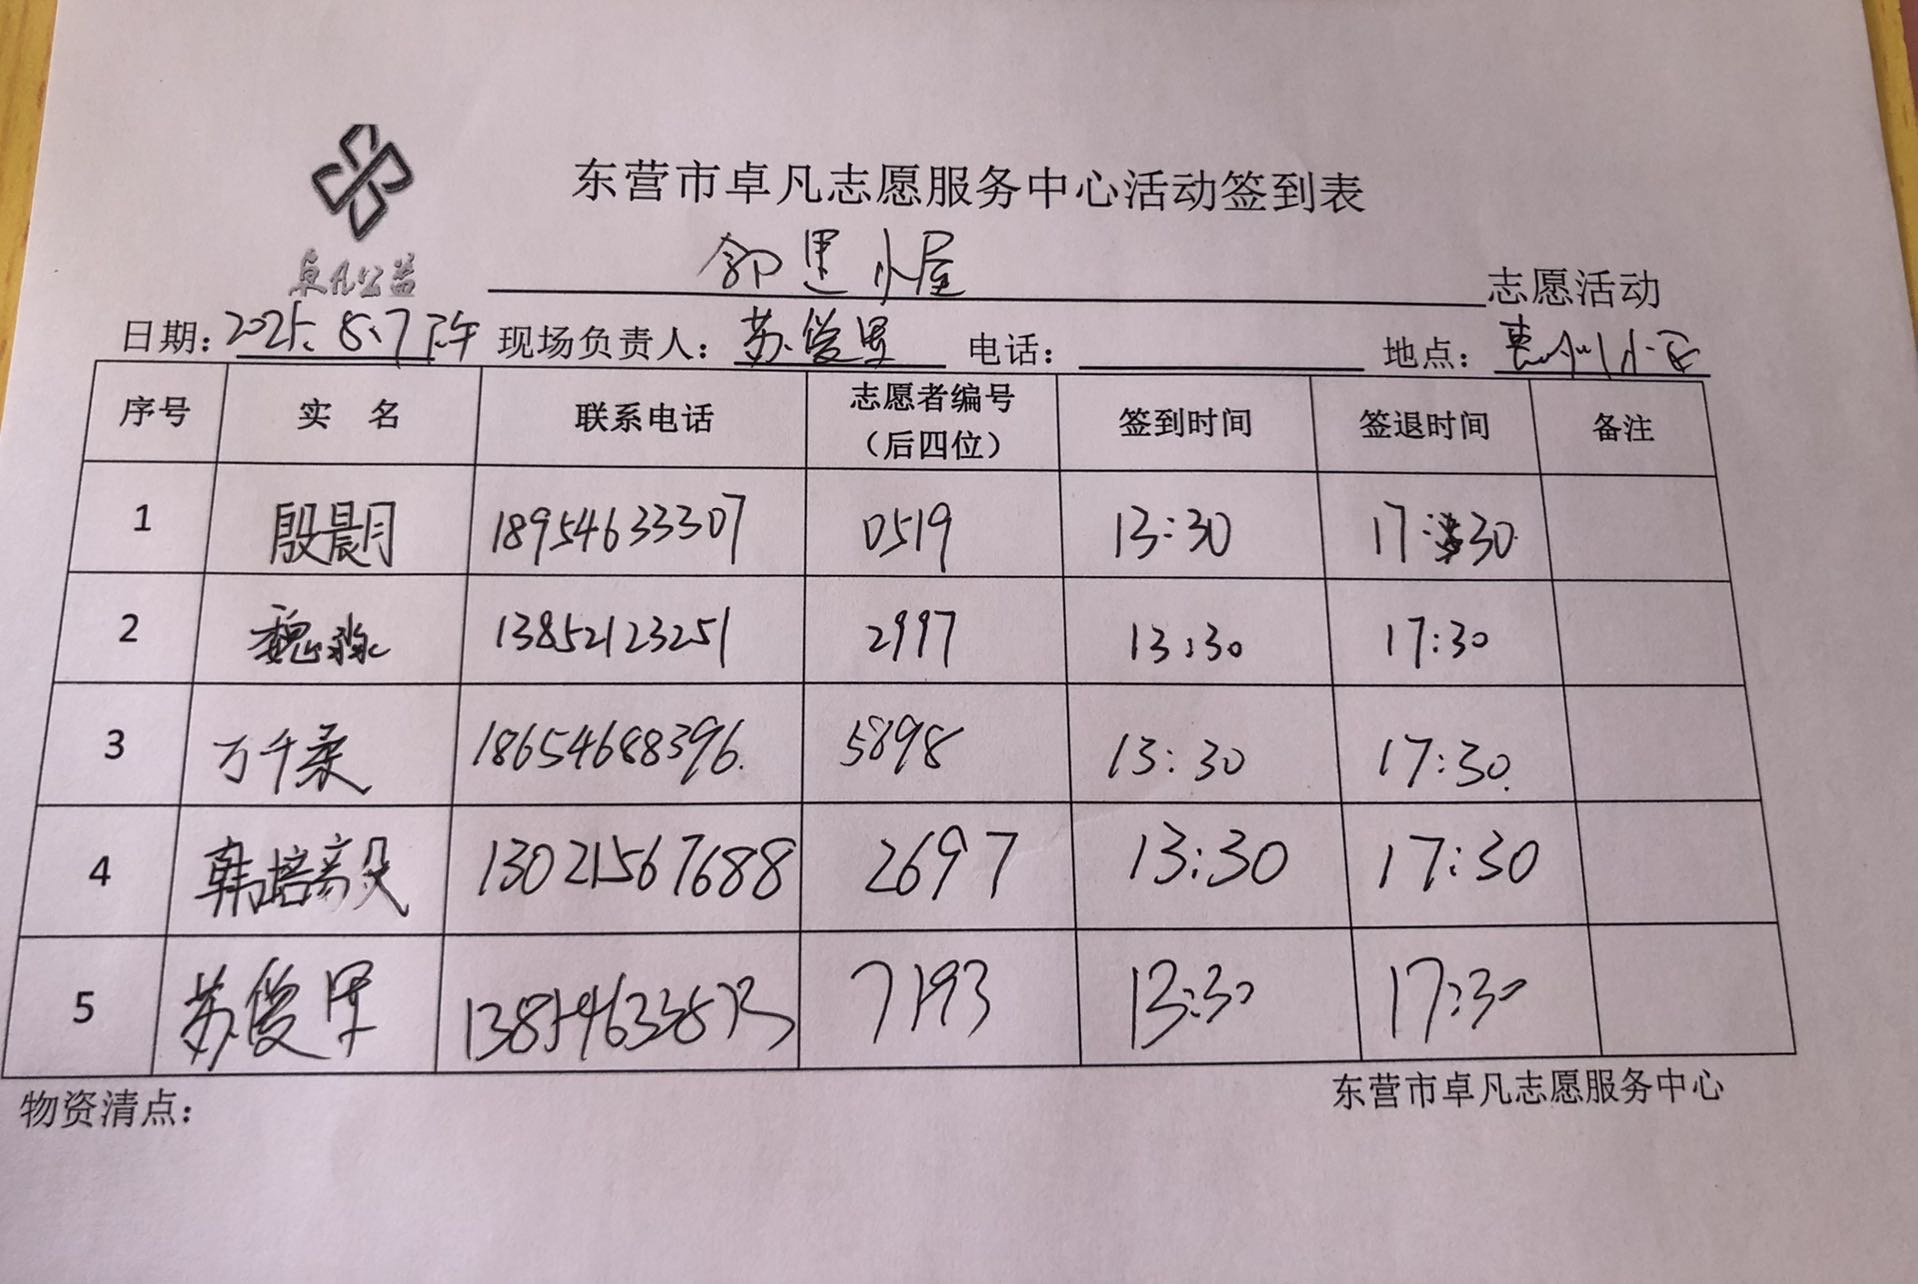 东营市卓凡志愿服务中心活动签到表
卓凡公益
邻里小屋 志愿活动
日期: 2025.8.7下午 现场负责人: 苏俊里 电话: 地点:
序号 实名 联系电话 志愿者编号(后四位) 签到时间 签退时间 备注
1 殷晨月 18954633307 0519 13:30 17:30
2 魏淼 13852123251 2997 13:30 17:30
3 万千柔 18654688396 5898 13:30 17:30
4 韩培 13021567688 2697 13:30 17:30
5 苏俊里 7193 13:30 17:30
物资清点:
东营市卓凡志愿服务中心